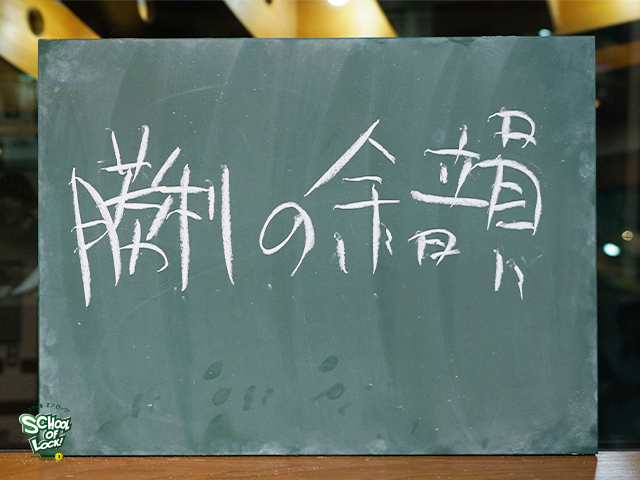 勝利の余韻
SCHOOL
OF
LOCK!